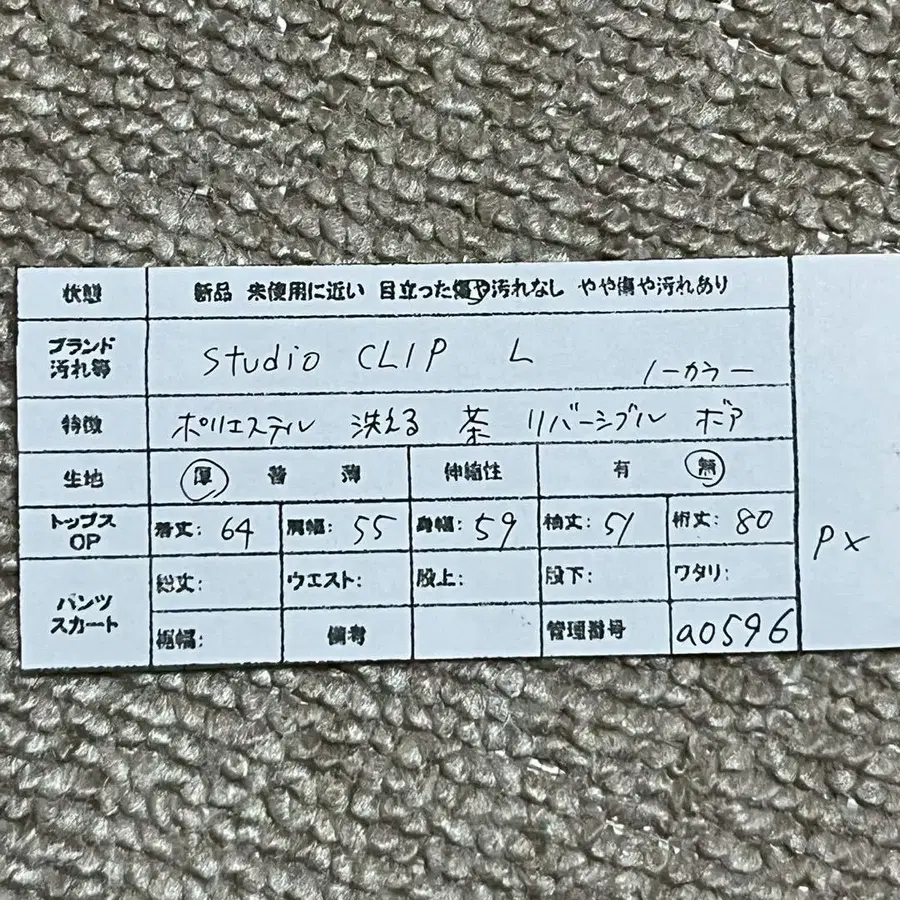 状態 新品 未使用に近い 目立った傷や汚れなし やや傷や汚れあり
ブランド
汚れ等
studio CLIP L ノーカラー
特徴 ポリエステル 洗える 茶 リバーシブル ボア
生地 厚 普 薄 伸縮性 有 無
トップス
OP
着丈: 64 肩幅: 55 身幅: 59 袖丈: 51 裄丈: 80
パンツ
スカート
総丈: ウエスト: 股上: 股下: ワタリ:
裾幅: 備考 管理番号 a0596
P×